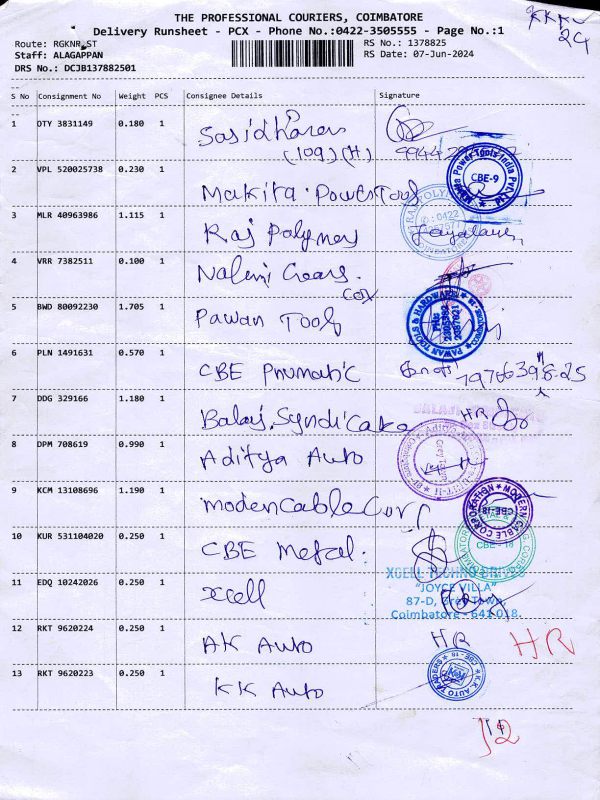 THE PROFESSIONAL COURIERS, COIMBATORE
Delivery Runsheet - PCX - Phone No.:0422-3505555 - Page No.:1
Route: RGKNR_ST
RS No.: 1378825
Staff: ALAGAPPAN
RS Date: 07-Jun-2024
DRS No.: DCJB137882501
S No Consignment No Weight PCS Consignee Details Signature
1 OTY 3831149 0.180 1 Sasidharan
(109) (H)
2 VPL 520025738 0.230 1 Makita Power Tools
CBE-9
3 MLR 40963986 1.115 1 Raj Polymers Jayalaxmi
4 VRR 7382511 0.100 1 Nalini Gears.
Cox
5 BWD 80092230 1.705 1 Pawan Tools
PAWAN TOOLS & HARDWARE
6 PLN 1491631 0.570 1 CBE Pnumatic
7 DDG 329166 1.180 1 Balaji Syndicate HR
8 DPM 708619 0.990 1 Aditya Auto
9 KCM 13108696 1.190 1 Moden Cable Corp
MODERN CABLE CORPORATION
CBE-18
10 KUR 531104020 0.250 1 CBE Metal.
CBE - 18
11 EDQ 10242026 0.250 1 Xcell
XCELL TECHNO DRIVES
"JOYCE VILLA"
87-D, Grey Town,
Coimbatore - 641 018.
12 RKT 9620224 0.250 1 AK Auto HR HR
13 RKT 9620223 0.250 1 KK Auto
K.K AUTO TRADERS
12